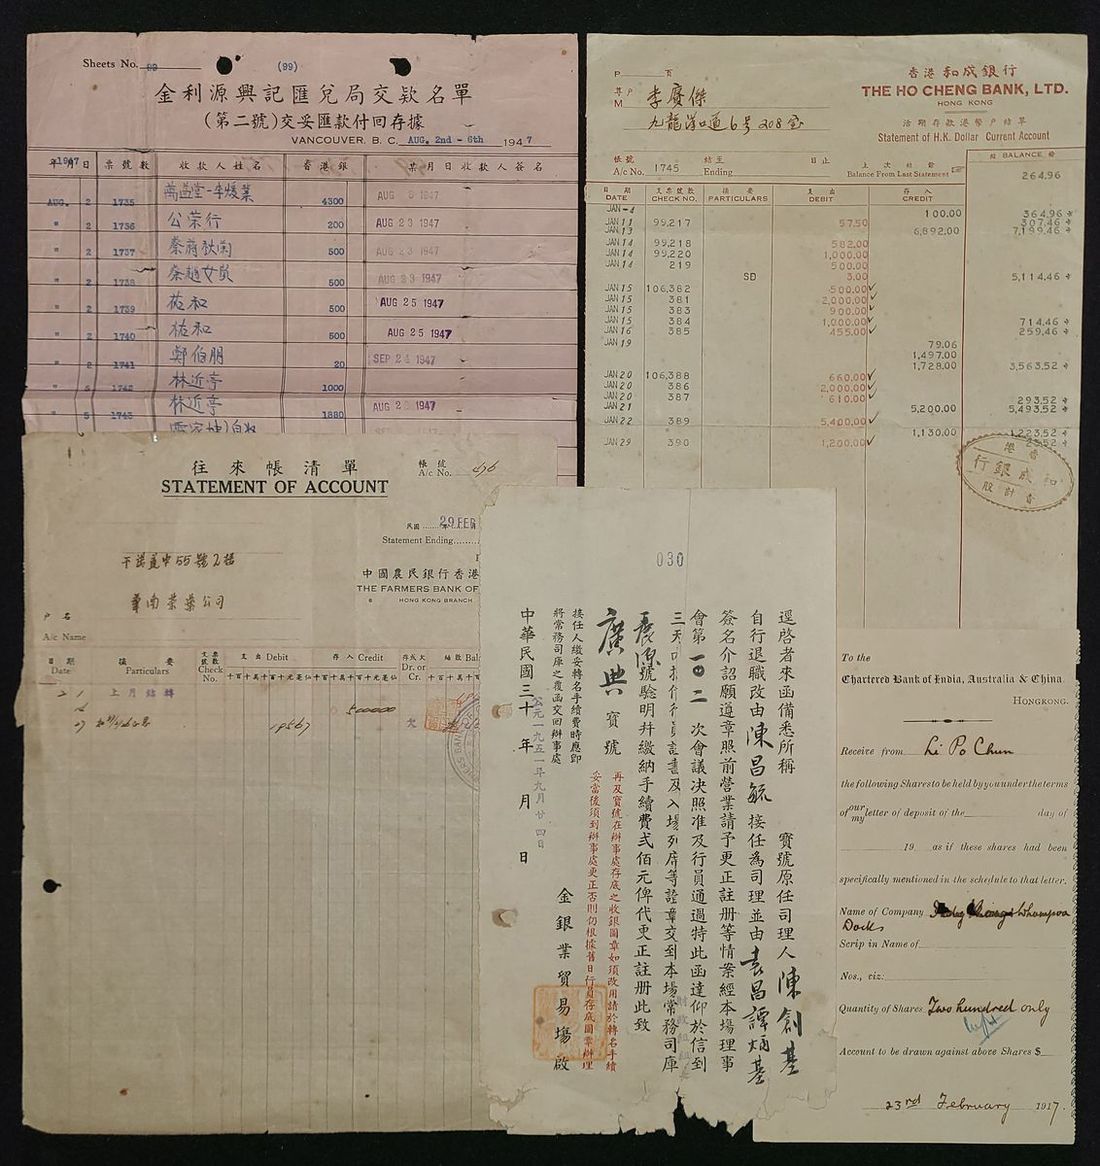 Sheets No. 99 (99)
金利源興記匯兌局交款名單
(第二號)交妥匯款付回存據
VANCOUVER, B. C. AUG. 2nd - 6th 1947
年 月 日 票號數 收款人姓名 香港銀 某月日收款人簽名
1947
AUG. 2 1735 4300
" 2 1736 公榮行 200 AUG 23 1947
" 2 1737 500 AUG 23 1947
" 2 1738 500 AUG 23 1947
" 2 1739 祐和 500 AUG 25 1947
" 2 1740 祐和 500 AUG 25 1947
" 2 1741 鄭伯朋 20 SEP 24 1947
" 5 1742 林近亭 1000
" 5 1743 林近亭 1880
香港和成銀行
THE HO CHENG BANK, LTD.
HONG KONG
活期存款港幣戶結單
Statement of H.K. Dollar Current Account
P 頁
M
九龍漢口道6号208室
帳號 結至 日止 上次結餘 結餘 BALANCE
A/c No. 1745 Ending Balance From Last Statement 264.96
日期 支票號數 摘要 支出 存入
DATE CHECK NO. PARTICULARS DEBIT CREDIT
JAN -4 100.00 364.96
JAN 11 99,217 57.50 307.46
JAN 13 6,892.00 7,199.46
JAN 14 99,218 582.00
JAN 14 99,220 1,000.00
JAN 14 219 500.00
SD 3.00 5,114.46
JAN 15 106,382 500.00
JAN 15 381 2,000.00
JAN 15 383 900.00
JAN 15 384 1,000.00 714.46
JAN 16 385 455.00 259.46
JAN 19 79.06
1,497.00
1,728.00 3,563.52
JAN 20 106,388 660.00
JAN 20 386 2,000.00
JAN 20 387 610.00 293.52
JAN 21 5,200.00 5,493.52
JAN 22 389 5,400.00
1,130.00 1,223.52
JAN 29 390 1,200.00
香港
和成銀行
會計股
往來帳清單
STATEMENT OF ACCOUNT
帳號
A/c No.
民國 29 FEB
Statement Ending
干諾道中55號2樓
中國農民銀行香港
THE FARMERS BANK OF
HONG KONG BRANCH
華南藥公司
戶名
A/c Name
日期 摘要 支票號數 支出 Debit 存入 Credit 存或欠 結數 Bal
Date Particulars Check No. Dr. or Cr.
2 1 上月結轉
500000
27 19567 欠
030
逕啓者來函備悉所稱 寶號原任司理人陳創基
自行退職改由陳昌毓接任為司理並由袁昌譚炳基
簽名介認願遵章照前營業請予更正註册等情案經本場理事
會第一〇二次會議決照准及行員通過特此函達仰於信到
號驗明幷繳納手續費弍佰元俾代更正註册此致
廣興 寶號
接任人繳妥轉名手續費時應即
將常務司庫之覆函交回辦事處
再及寶號在辦事處存底之收銀圖章如須改用請於轉名手續
妥當後須到辦事處更正否則仍根據舊日行員存底圖章辦理
金銀業貿易場啟
中華民國三十 年 月 日
公元一九五一年九月廿四日
To the
Chartered Bank of India, Australia & China.
HONGKONG.
Receive from Li Po Chun
the following Shares to be held by you under the terms
of our/my letter of deposit of the day of
19 as if these shares had been
specifically mentioned in the schedule to that letter.
Name of Company Whampoa
Docks
Scrip in Name of
Nos., viz:
Quantity of Shares Two hundred only
Account to be drawn against above Shares $
23rd February 1917